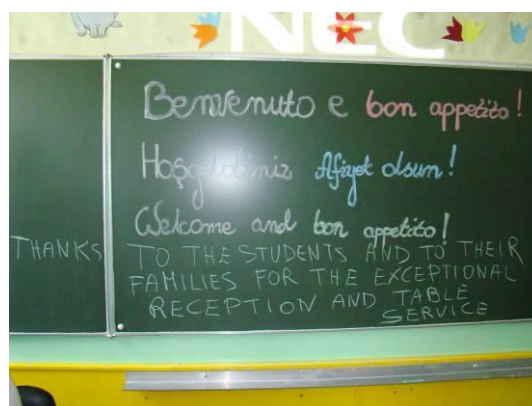 NEC
Benvenuto e bon appetito!
Hoşgeldiniz Afiyet olsun!
Welcome and bon appetito!
THANKS TO THE STUDENTS AND TO THEIR
FAMILIES FOR THE EXCEPTIONAL
RECEPTION AND TABLE
SERVICE